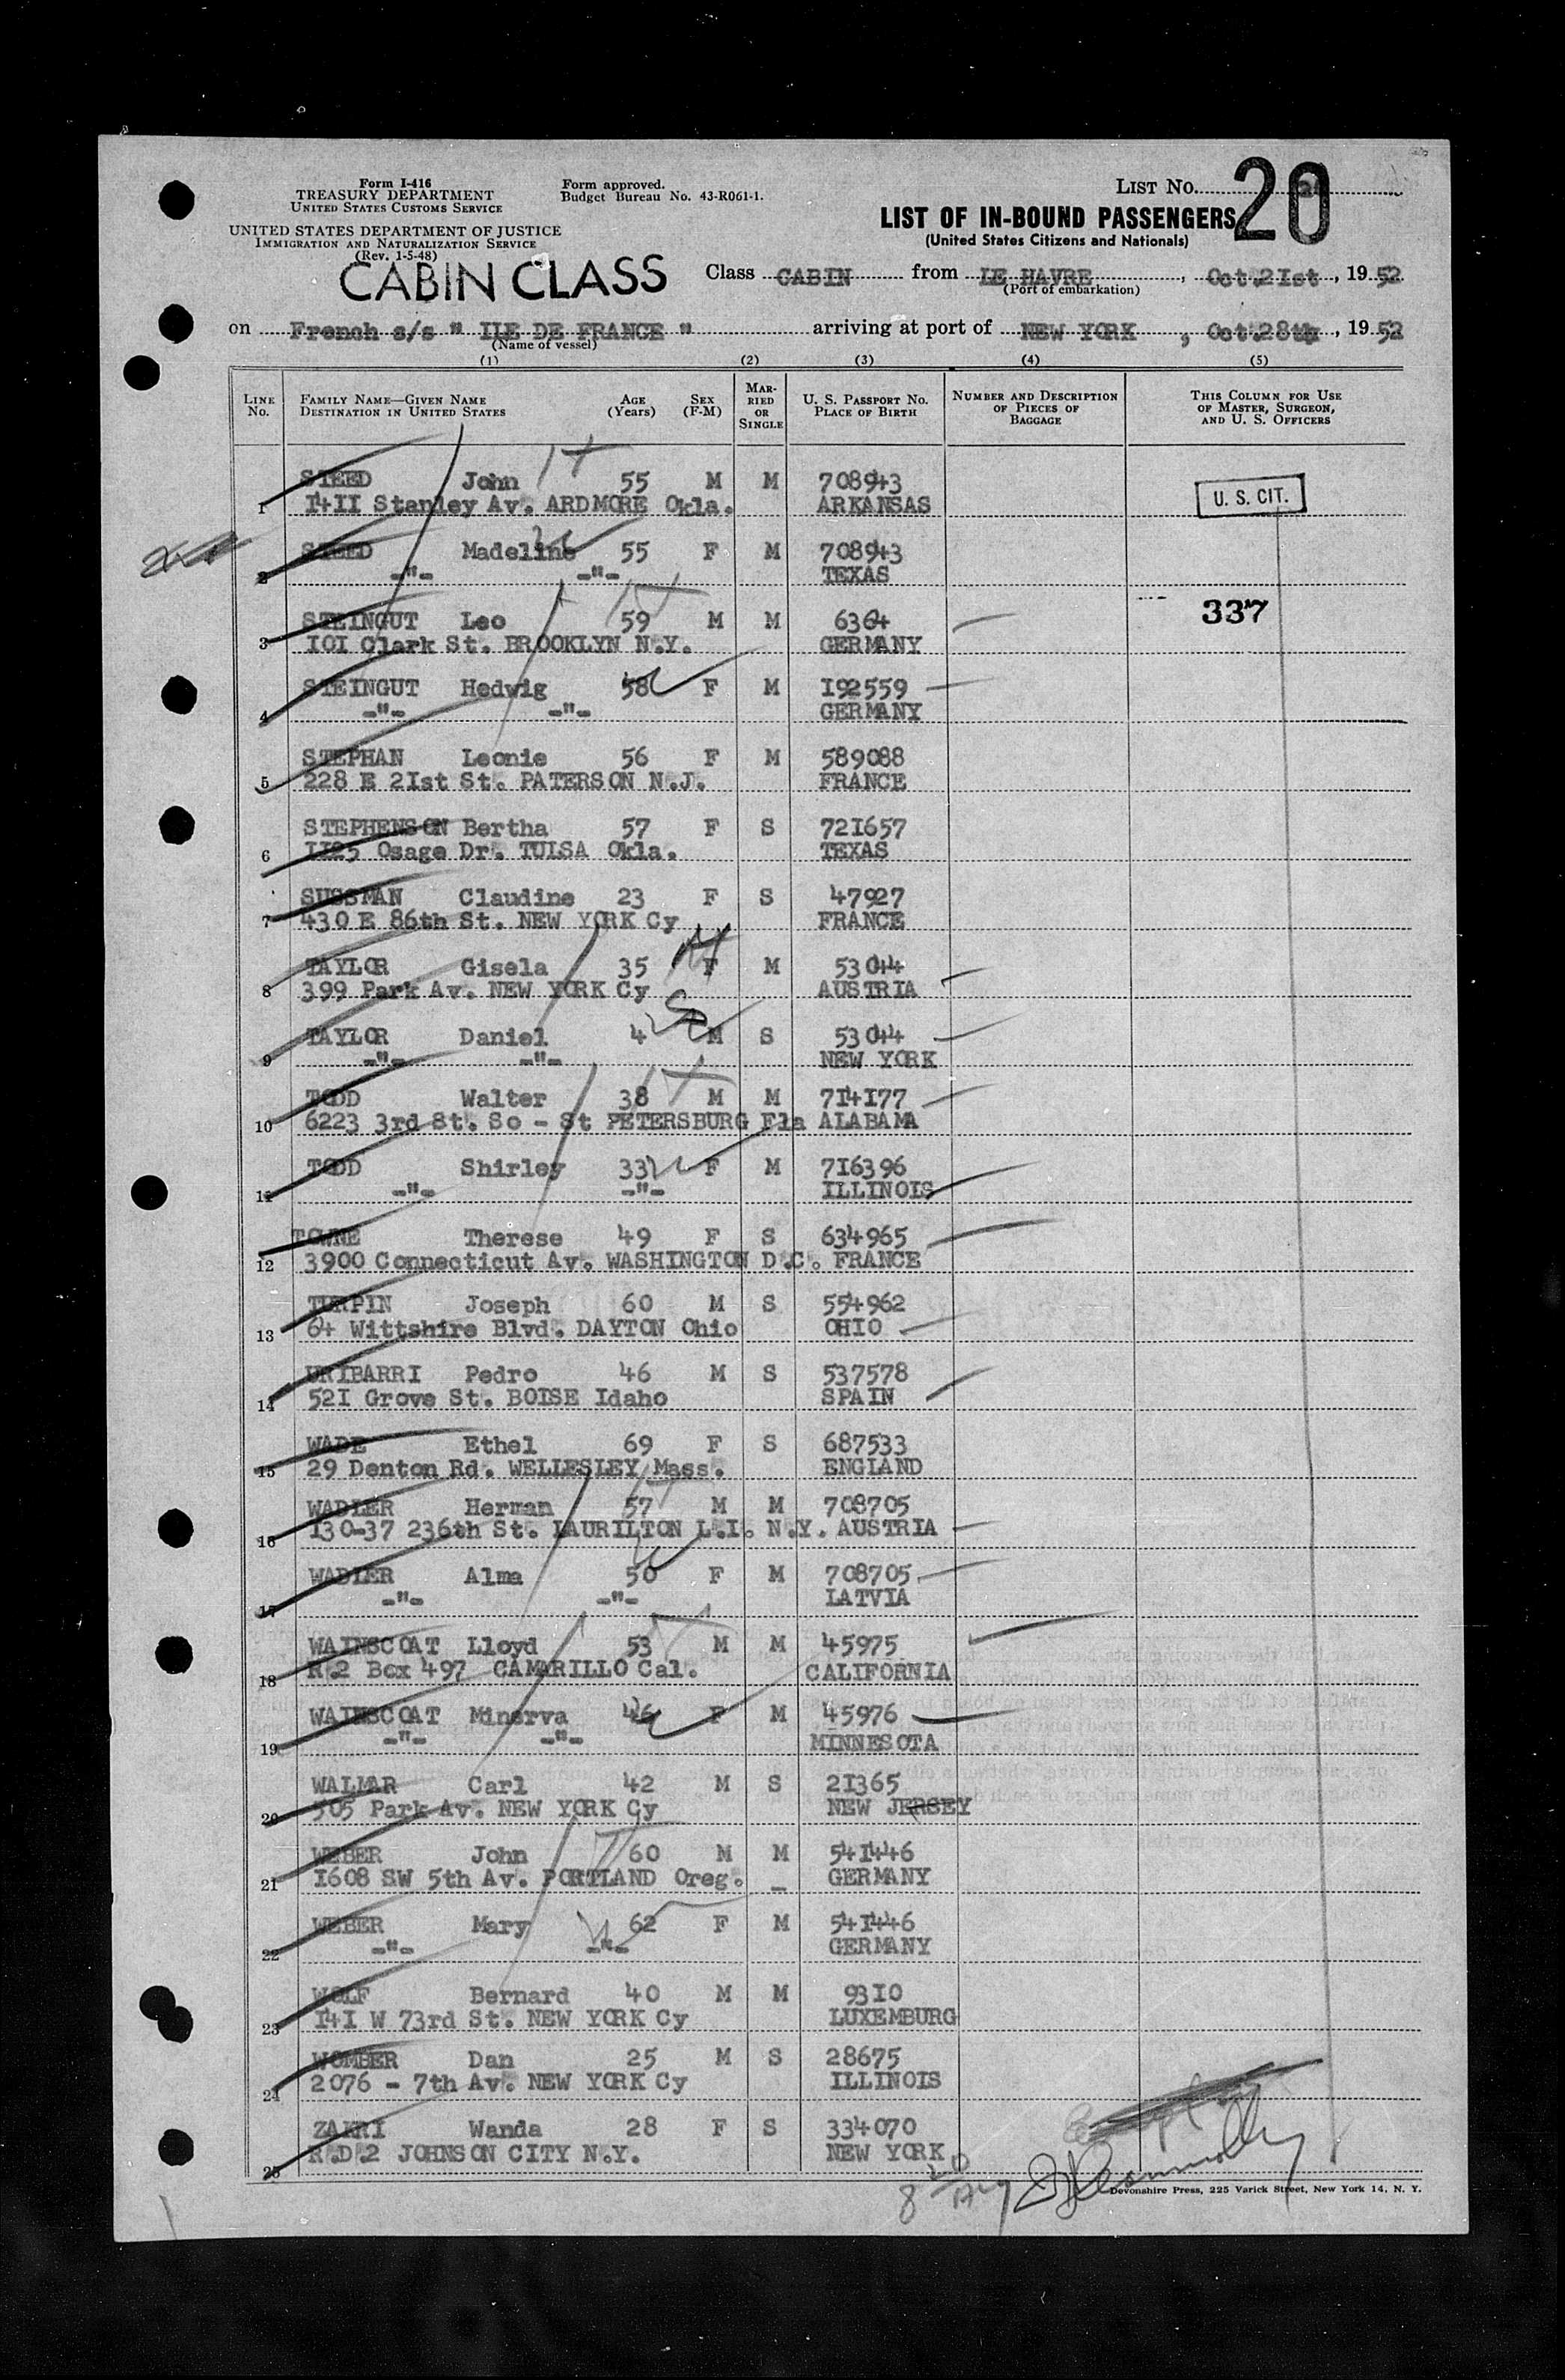 Form I-416
TREASURY DEPARTMENT
UNITED STATES CUSTOMS SERVICE
UNITED STATES DEPARTMENT OF JUSTICE
IMMIGRATION AND NATURALIZATION SERVICE
(Rev. 1-5-48)
Form approved.
Budget Bureau No. 43-R061-1.
LIST No. 20
LIST OF IN-BOUND PASSENGERS
(United States Citizens and Nationals)
CABIN CLASS
Class CABIN from LE HAVRE, Oct.21st, 1952
(Port of embarkation)
on French s/s " ILE DE FRANCE " arriving at port of NEW YORK, Oct.28th, 1952
(Name of vessel)
(1) (2) (3) (4) (5)
LINE No. FAMILY NAME—GIVEN NAME DESTINATION IN UNITED STATES AGE (Years) SEX (F-M) MARRIED OR SINGLE U. S. PASSPORT NO. PLACE OF BIRTH NUMBER AND DESCRIPTION OF PIECES OF BAGGAGE THIS COLUMN FOR USE OF MASTER, SURGEON, AND U. S. OFFICERS
STEED John 55 M M 708943 U. S. CIT.
1 1411 Stanley Av. ARDMORE Okla. ARKANSAS
STEED Madeline 55 F M 708943
2 -"- -"- TEXAS
STEINGUT Leo 59 M M 6364 337
3 101 Clark St. BROOKLYN N.Y. GERMANY
STEINGUT Hedwig 58 F M 192559
4 -"- -"- GERMANY
STEPHAN Leonie 56 F M 589088
5 228 E 21st St. PATERSON N.J. FRANCE
STEPHENSON Bertha 57 F S 721657
6 1125 Osage Dr. TULSA Okla. TEXAS
SUSSMAN Claudine 23 F S 47927
7 430 E 86th St. NEW YORK Cy FRANCE
TAYLOR Gisela 35 F M 53044
8 399 Park Av. NEW YORK Cy AUSTRIA
TAYLOR Daniel 4 M S 53044
9 -"- -"- NEW YORK
TODD Walter 38 M M 714177
10 6223 3rd St. So - St PETERSBURG Fla ALABAMA
TODD Shirley 33 F M 716396
11 -"- -"- ILLINOIS
TOWNE Therese 49 F S 634965
12 3900 Connecticut Av. WASHINGTON D.C. FRANCE
TURPIN Joseph 60 M S 554962
13 64 Wittshire Blvd. DAYTON Ohio OHIO
URIBARRI Pedro 46 M S 537578
14 521 Grove St. BOISE Idaho SPAIN
WADE Ethel 69 F S 687533
15 29 Denton Rd. WELLESLEY Mass. ENGLAND
WADLER Herman 57 M M 708705
16 130-37 236th St. LAURILTON L.I. N.Y. AUSTRIA
WADLER Alma 50 F M 708705
17 -"- -"- LATVIA
WAINSCOAT Lloyd 53 M M 45975
18 R.2 Box 497 CAMARILLO Cal. CALIFORNIA
WAINSCOAT Minerva 46 F M 45976
19 -"- -"- MINNESOTA
WALMAR Carl 42 M S 21365
20 505 Park Av. NEW YORK Cy NEW JERSEY
WEBER John 60 M M 541446
21 1608 SW 5th Av. PORTLAND Oreg. GERMANY
WEBER Mary 62 F M 541446
22 -"- -"- GERMANY
WOLF Bernard 40 M M 9310
23 141 W 73rd St. NEW YORK Cy LUXEMBURG
WOMBER Dan 25 M S 28675
24 2076 - 7th Av. NEW YORK Cy ILLINOIS
ZAKRI Wanda 28 F S 334070
25 R.D.2 JOHNSON CITY N.Y. NEW YORK
Devonshire Press, 225 Varick Street, New York 14, N. Y.